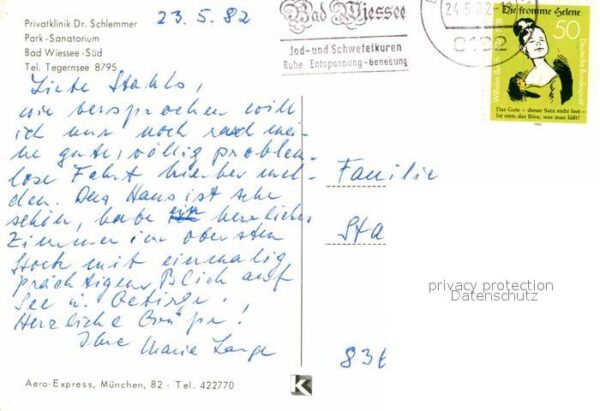 Privatklinik Dr. Schlemmer
Park-Sanatorium
Bad Wiessee-Süd
Tel. Tegernsee 8795
23.5.82
Liebe Stahls,
wie versprochen will
ich nur noch rasch mei-
ne gute, völlig problem-
lose Fahrt hierher mel-
den. Das Haus ist sehr
schön, habe ein herrliches
Zimmer im obersten
Stock mit einmalig
prächtigem Blick auf
See u. Gebirge.
Herzliche Grüße!
Ihre Marie Lange
Aero-Express, München, 82 - Tel. 422770
Bad Wiessee
Jod- und Schwefelkuren
Ruhe Entspannung - Genesung
24.5.82
Die fromme Helene
50
Wilhelm Busch
Deutsche Bundespost
Das Gute – dieser Satz steht fest –
Ist stets das Böse, was man läßt!
Familie
Sta
privacy protection
Datenschutz
K